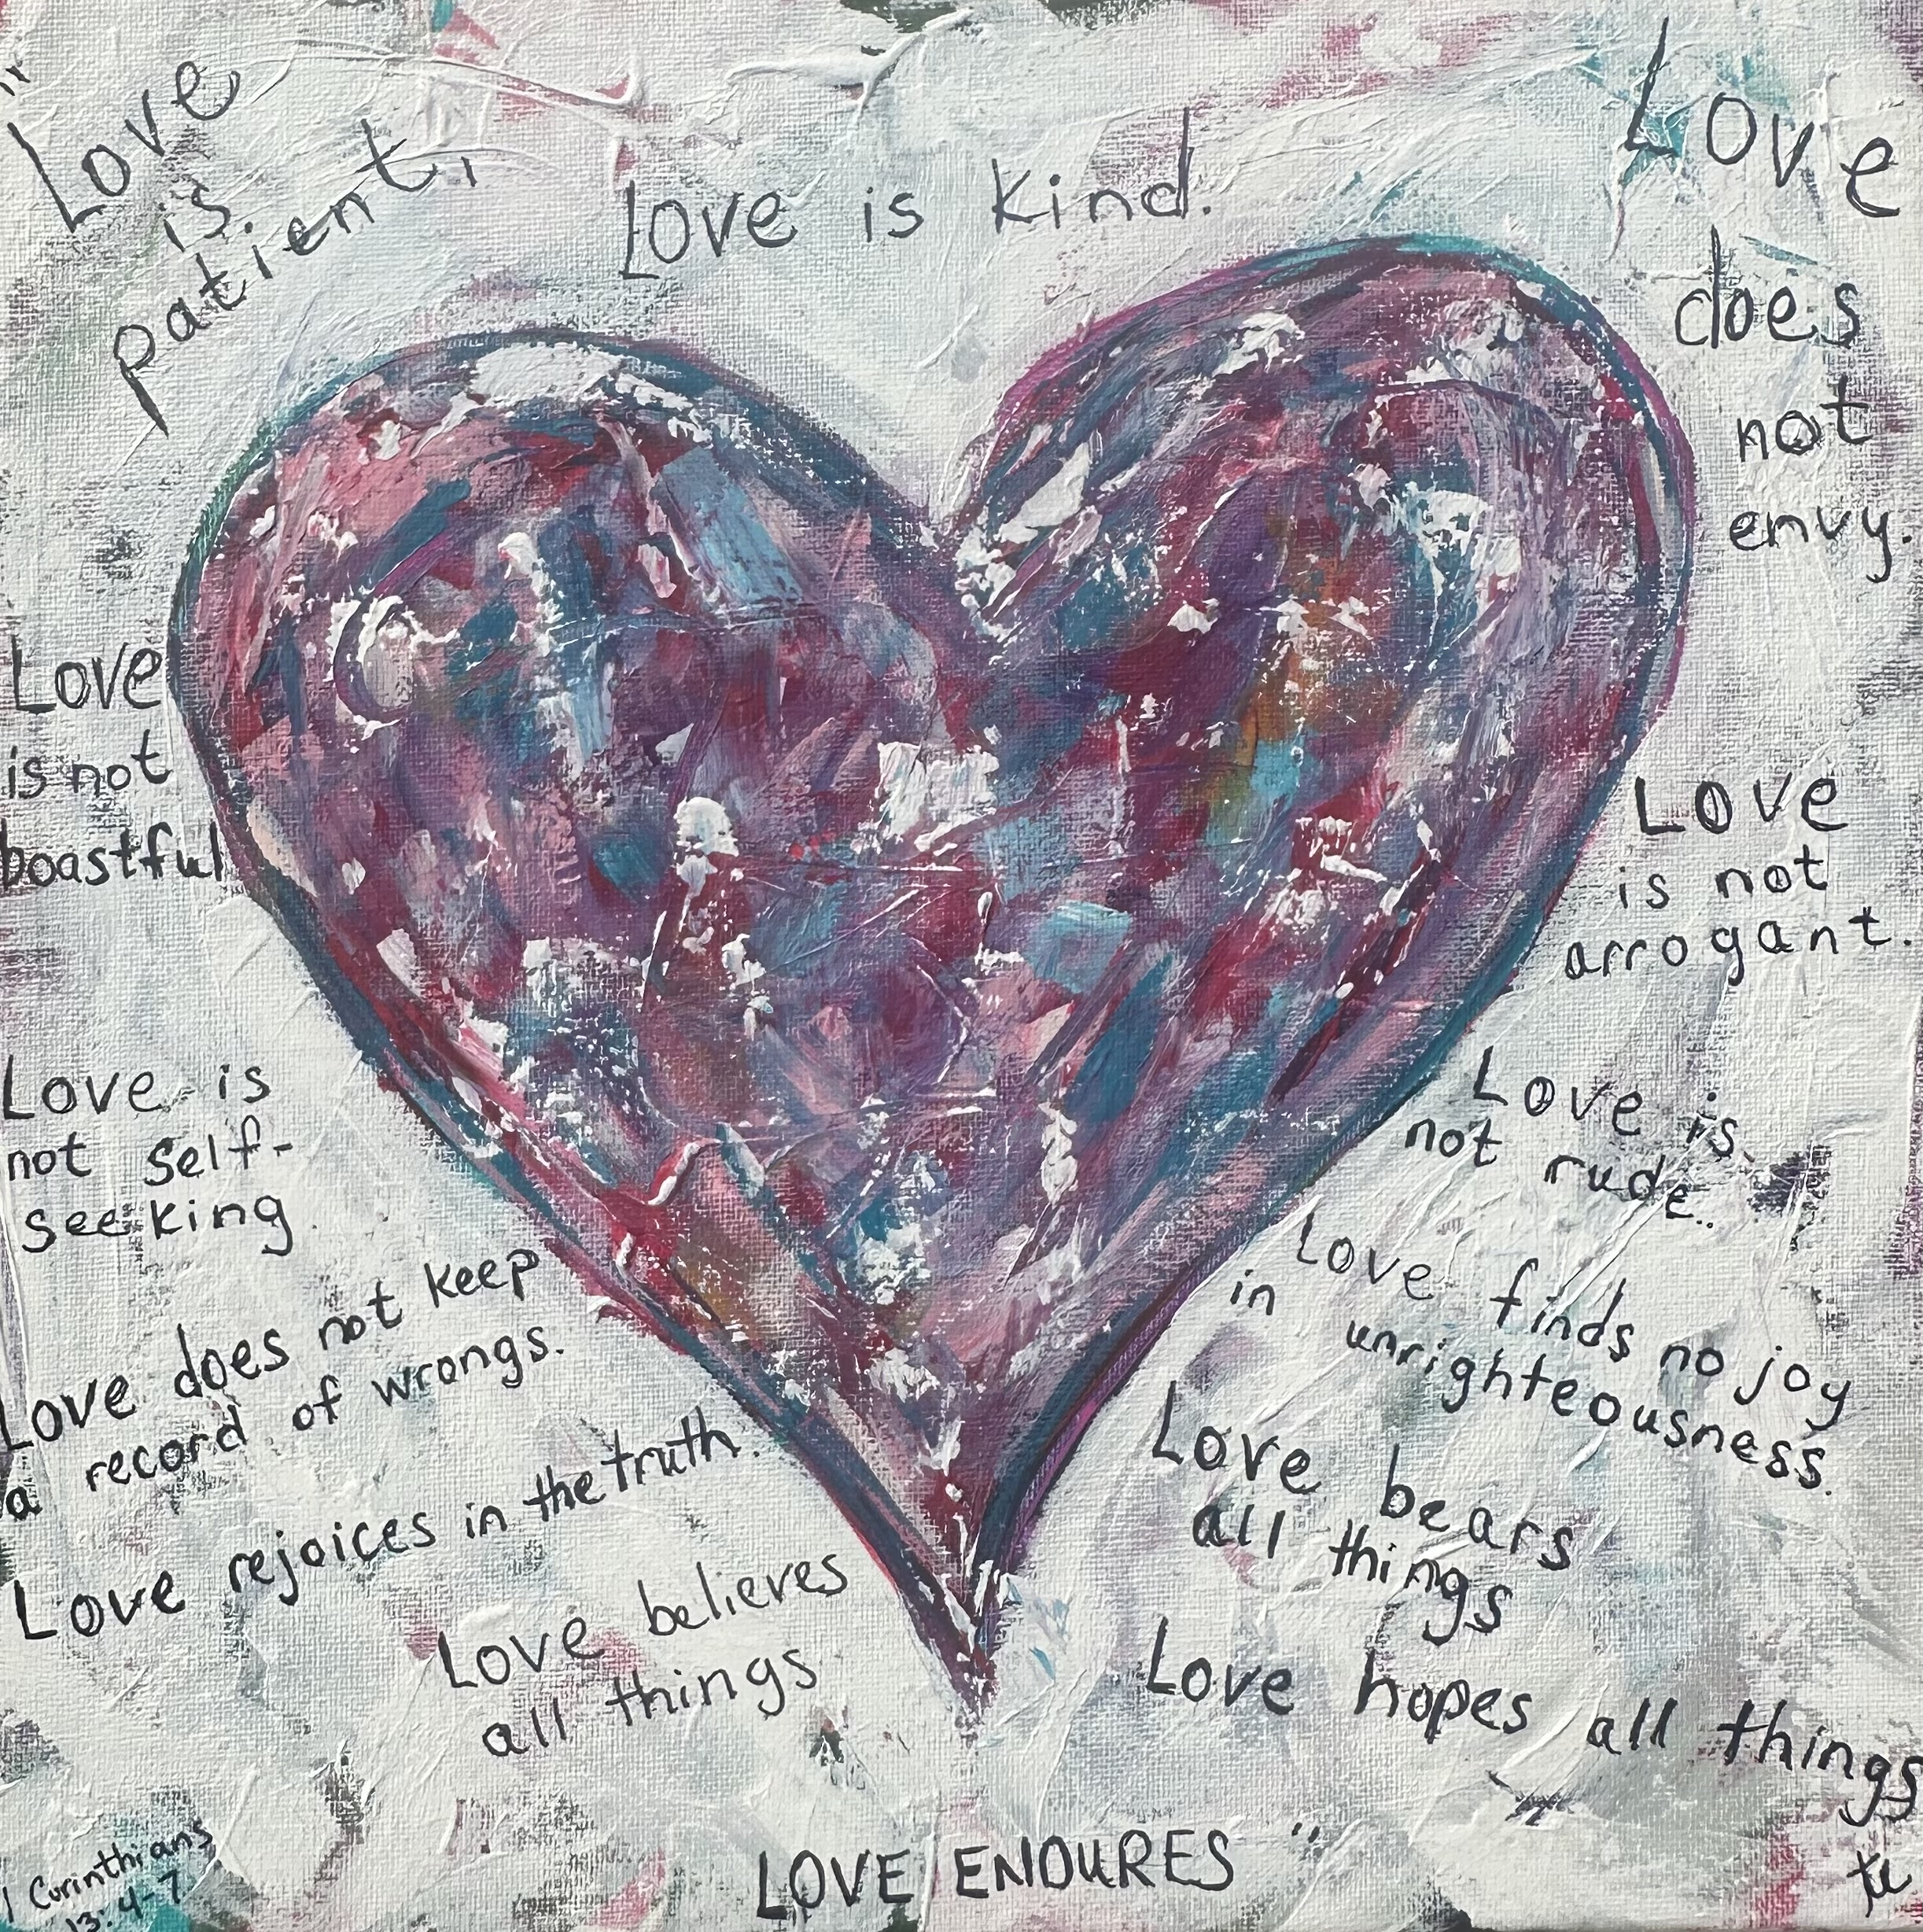 "Love
is
patient,
Love is kind.
Love
does
not
envy.
Love
is not
boastful
Love
is not
arrogant.
Love is
not rude.
Love is
not self-
seeking
Love finds no joy
in unrighteousness.
Love does not keep
a record of wrongs.
Love rejoices in the truth.
Love bears
all things
Love believes
all things
Love hopes all things
LOVE ENDURES "
1 Corinthians
13:4-7